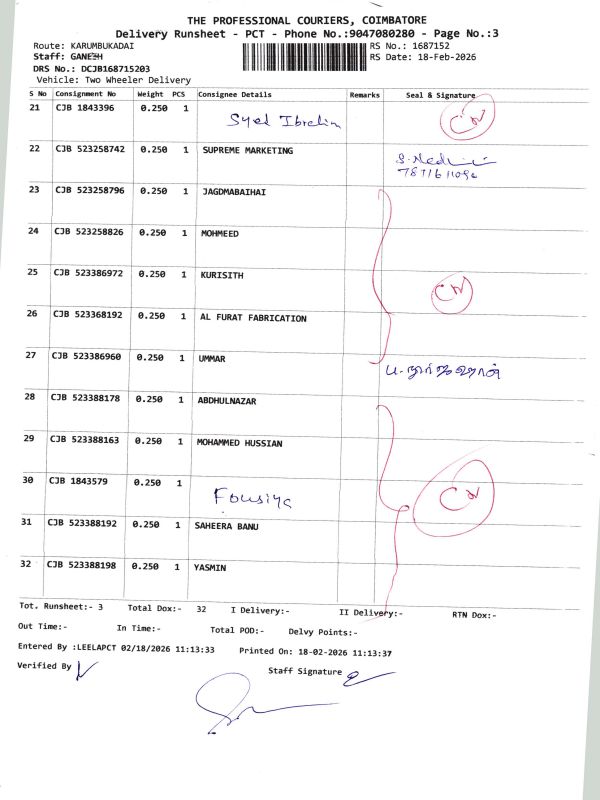 THE PROFESSIONAL COURIERS, COIMBATORE
Delivery Runsheet - PCT - Phone No.:9047080280 - Page No.:3
Route: KARUMBUKADAI RS No.: 1687152
Staff: GANESH RS Date: 18-Feb-2026
DRS No.: DCJB168715203
Vehicle: Two Wheeler Delivery
S No Consignment No Weight PCS Consignee Details Remarks Seal & Signature
21 CJB 1843396 0.250 1 Syed Ibrahim
22 CJB 523258742 0.250 1 SUPREME MARKETING
23 CJB 523258796 0.250 1 JAGDMABAIHAI
24 CJB 523258826 0.250 1 MOHMEED
25 CJB 523386972 0.250 1 KURISITH
26 CJB 523368192 0.250 1 AL FURAT FABRICATION
27 CJB 523386960 0.250 1 UMMAR
28 CJB 523388178 0.250 1 ABDHULNAZAR
29 CJB 523388163 0.250 1 MOHAMMED HUSSIAN
30 CJB 1843579 0.250 1 Fousiya
31 CJB 523388192 0.250 1 SAHEERA BANU
32 CJB 523388198 0.250 1 YASMIN
Tot. Runsheet:- 3 Total Dox:- 32 I Delivery:- II Delivery:- RTN Dox:-
Out Time:- In Time:- Total POD:- Delvy Points:-
Entered By :LEELAPCT 02/18/2026 11:13:33 Printed On: 18-02-2026 11:13:37
Verified By Staff Signature